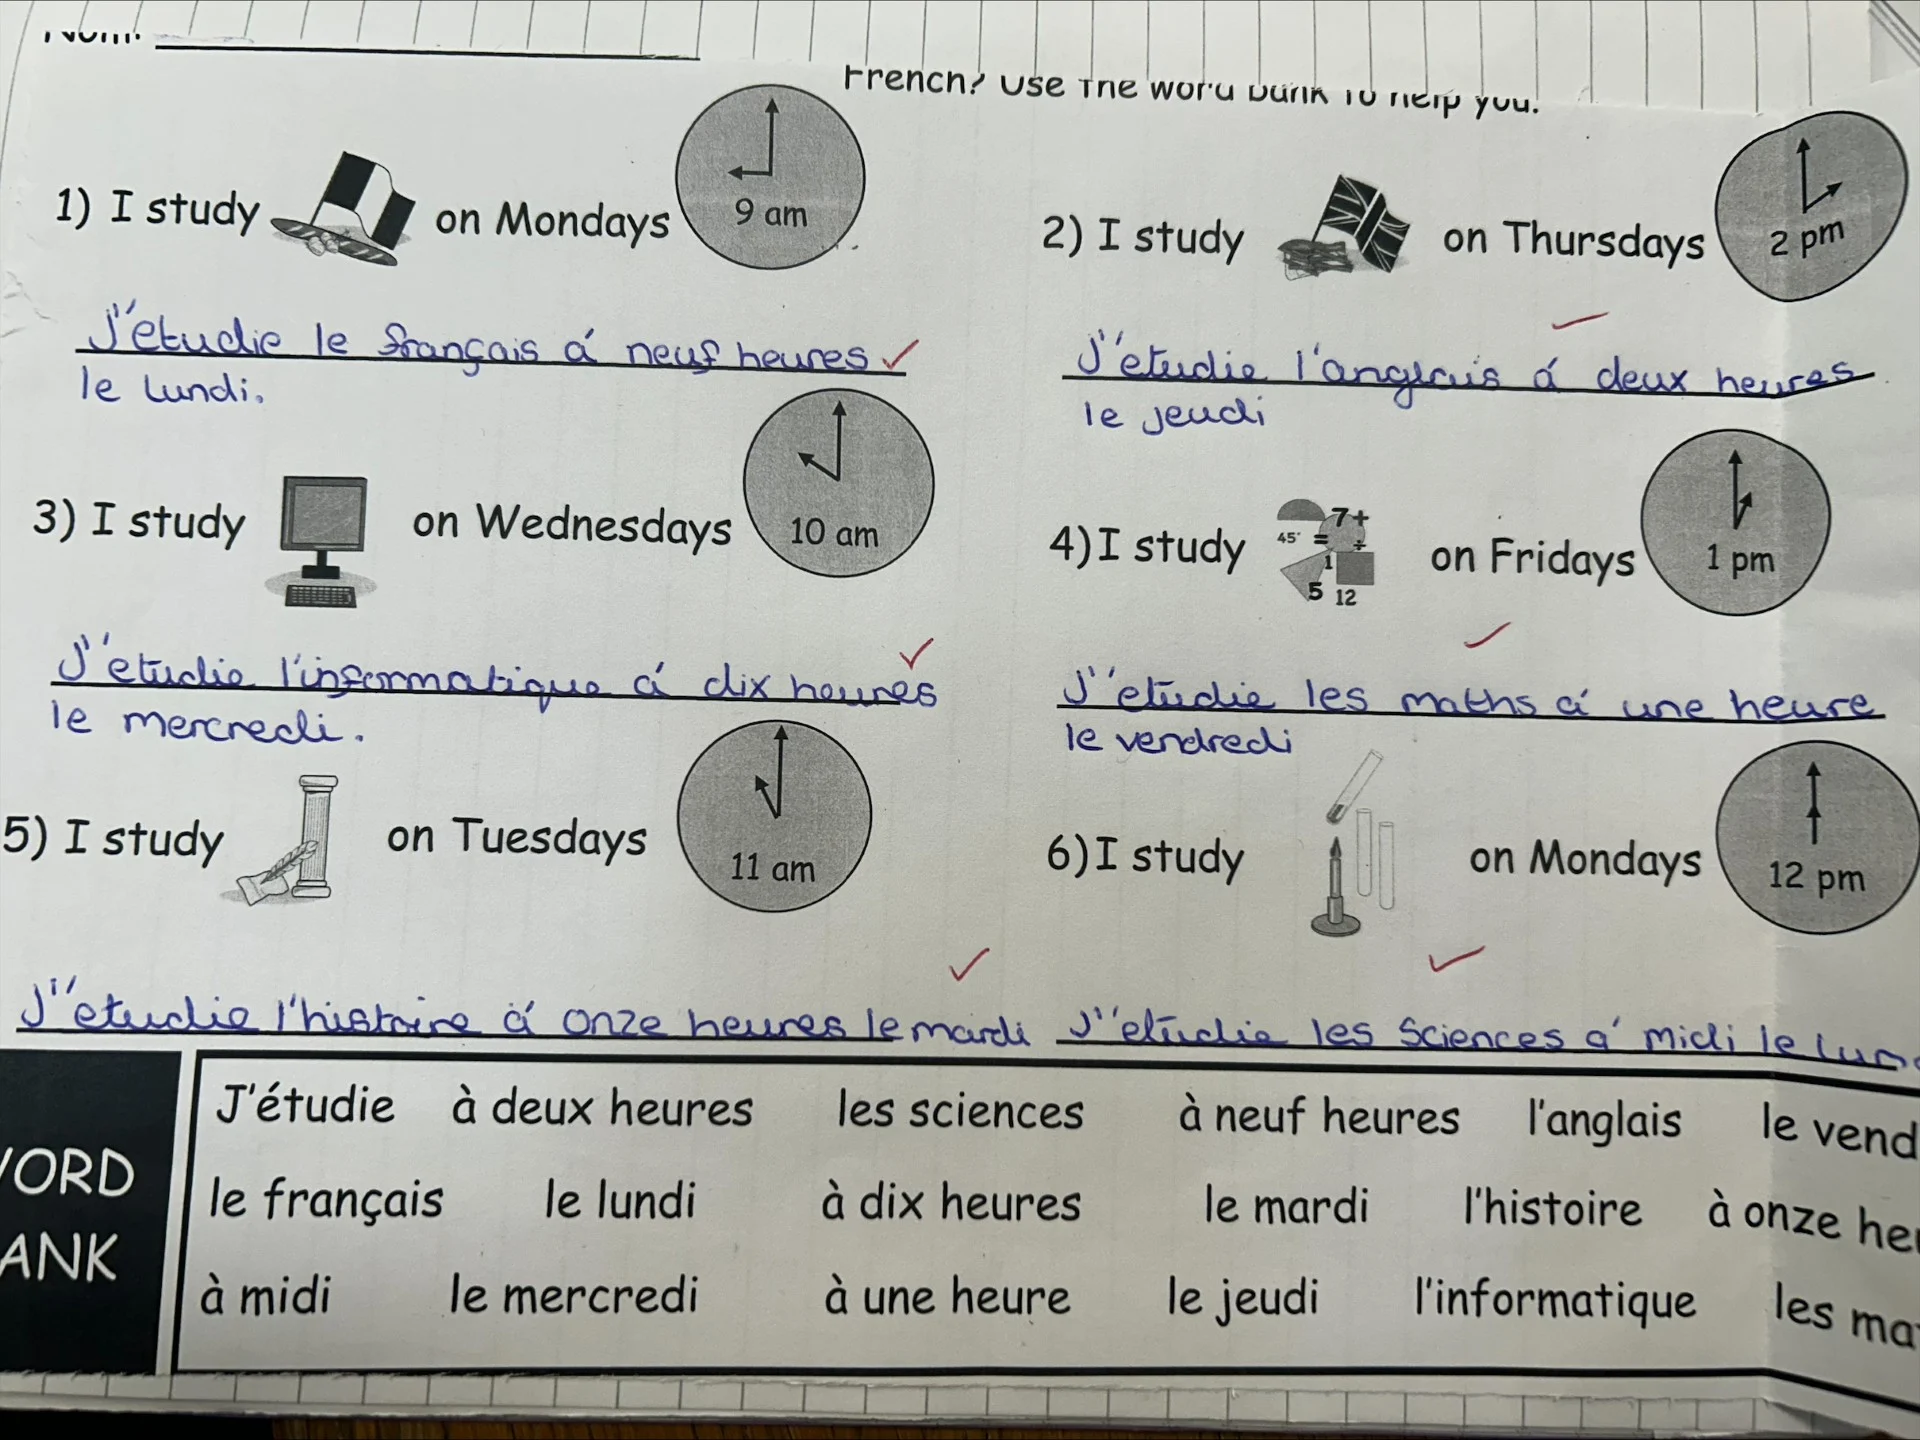 Nom:
French? Use the word bank to help you.
1) I study on Mondays 9 am
2) I study on Thursdays 2 pm
J'etudie le français á neuf heures
le lundi.
J'etudie l'anglais á deux heures
le jeudi
3) I study on Wednesdays 10 am
4) I study 7+ 45° = ÷ 1 5 12 on Fridays 1 pm
J'etudie l'informatique á dix heures
le mercredi.
J'etudie les maths á une heure
le vendredi
5) I study on Tuesdays 11 am
6) I study on Mondays 12 pm
J'etudie l'histoire á onze heures le mardi
J'etudie les sciences a' midi le
ORD
ANK
J'étudie à deux heures les sciences à neuf heures l'anglais le vend
le français le lundi à dix heures le mardi l'histoire à onze he
à midi le mercredi à une heure le jeudi l'informatique les ma